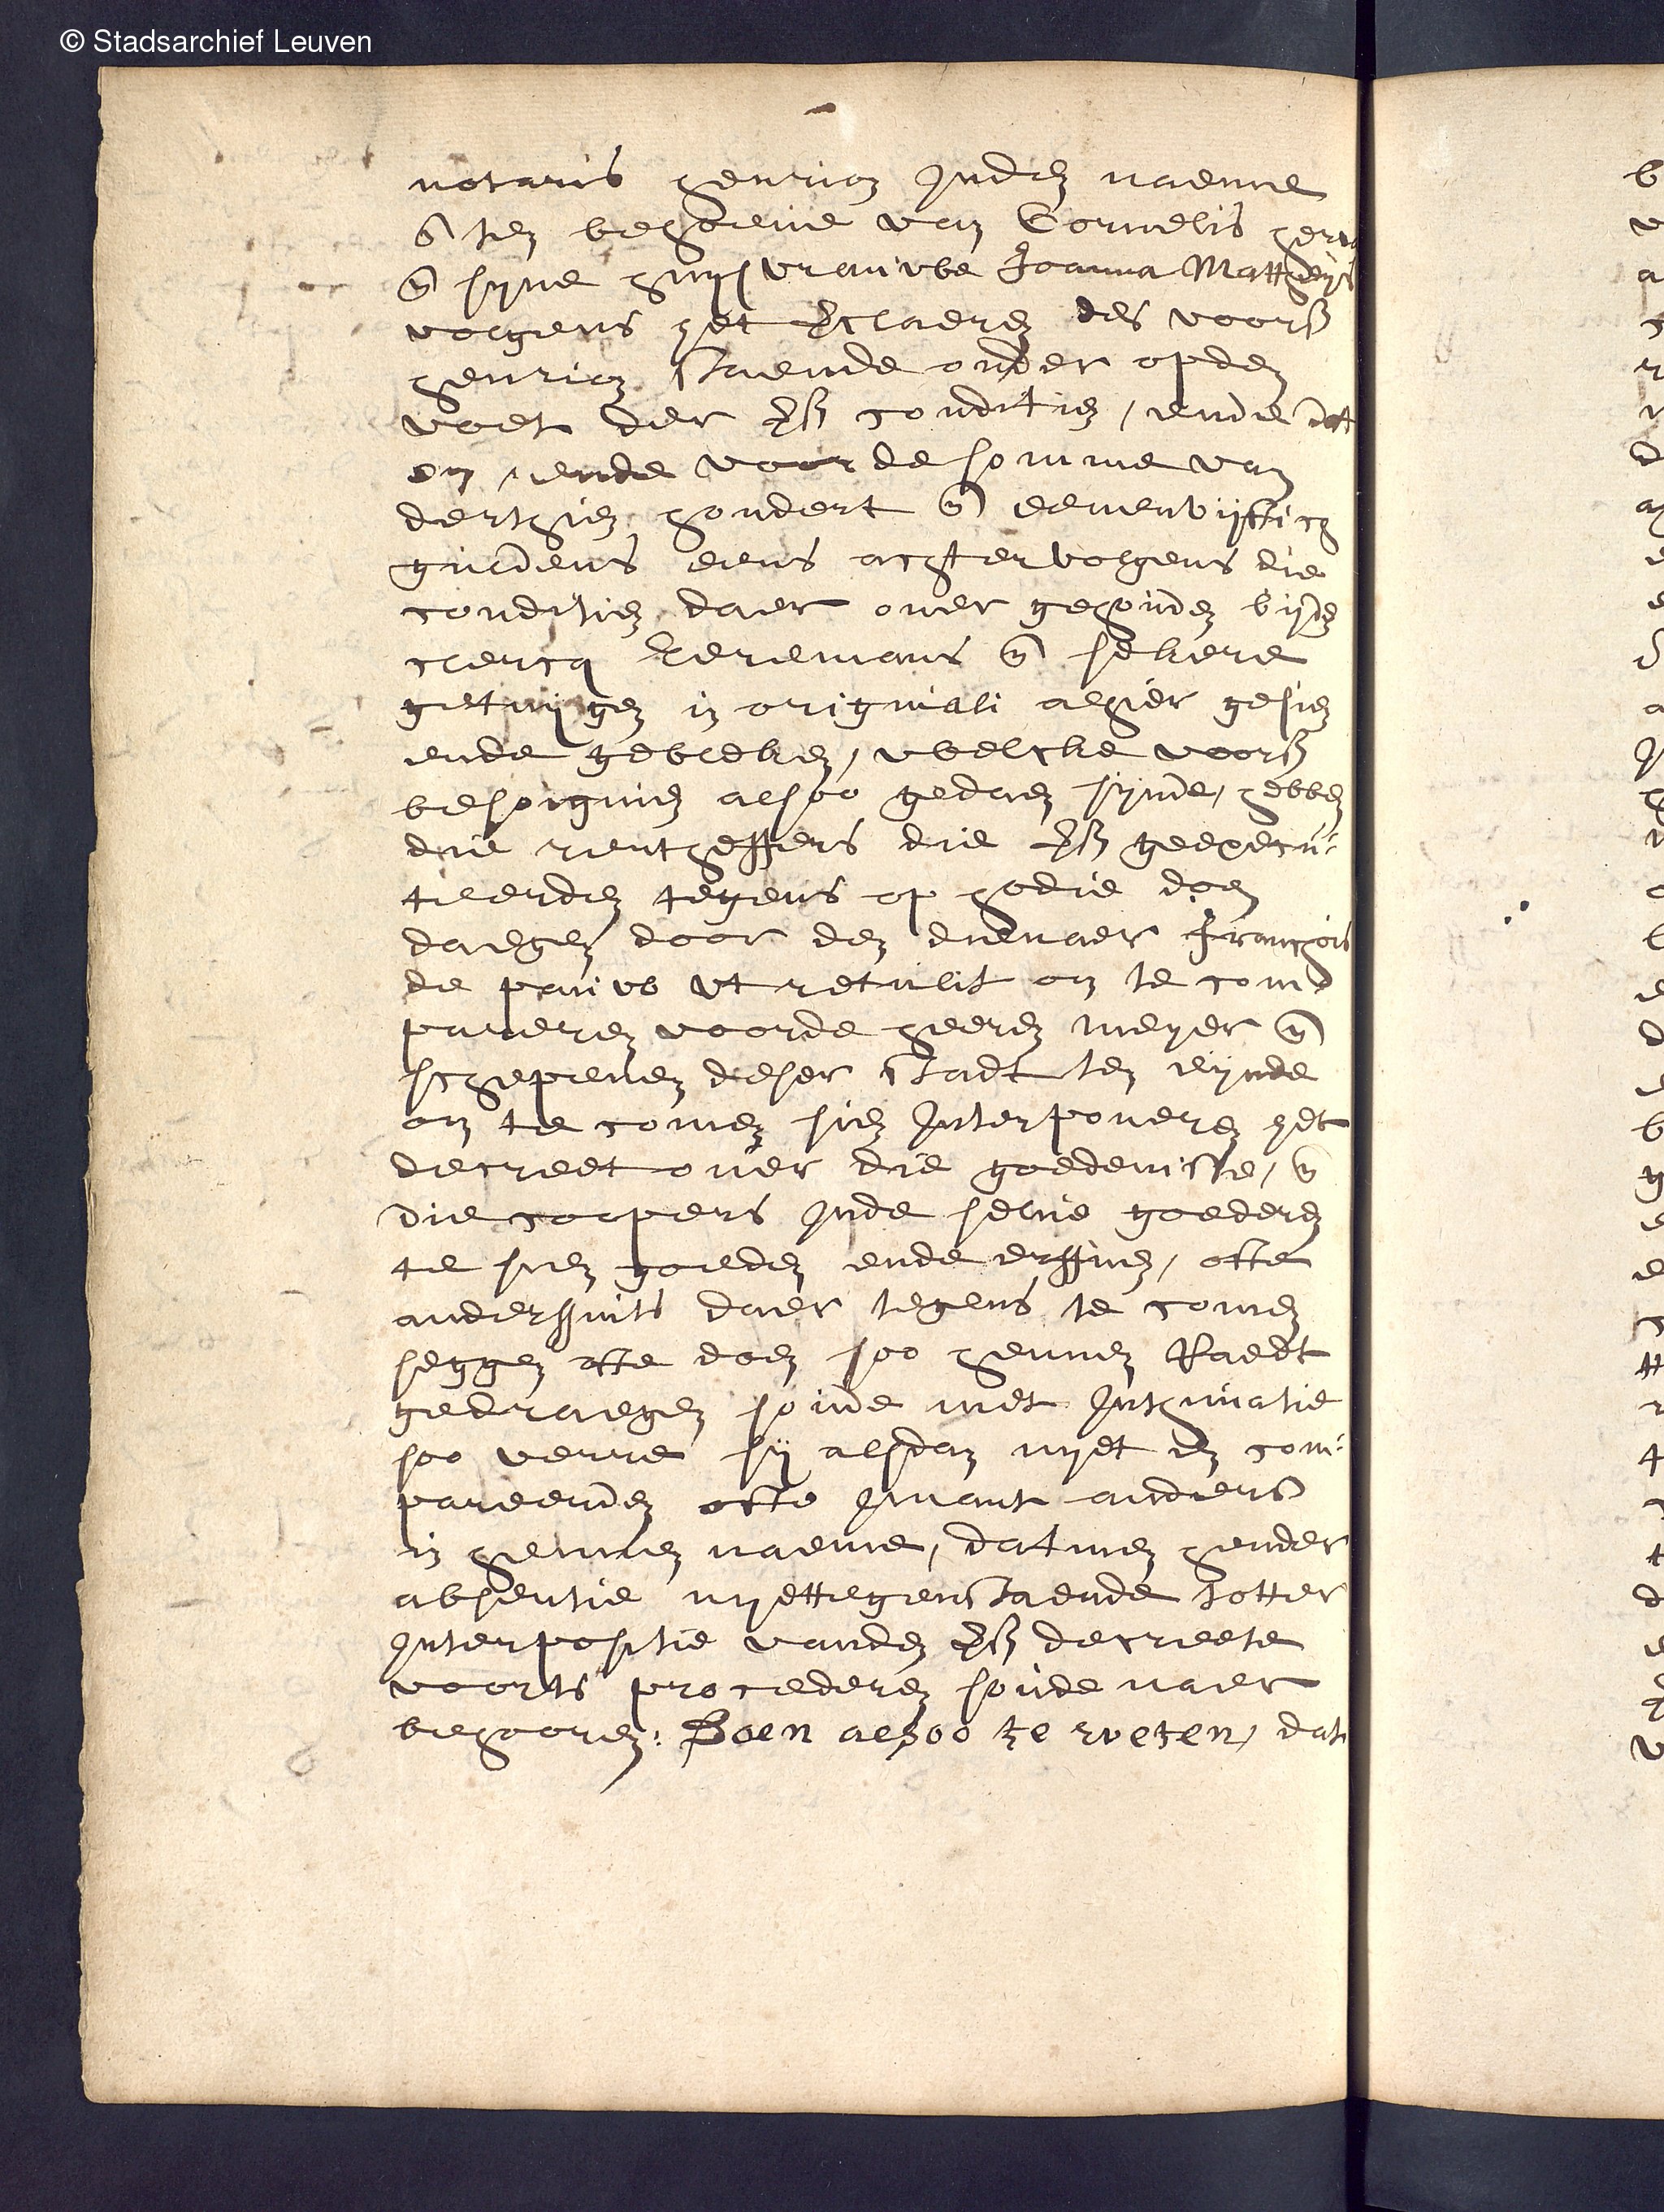 © Stadsarchief Leuven
notaris henrion Inden naeme
en ten behoeve van Cornelis
en syne huysvrauwe Joanna Mattheys
volgens het verclaeren des voors
henrion staende onder opden
voet der vors conditien, ende dat
om ende voor de somme van
derthien hondert en eenenvijftich
guldens eens achtervolgens die
conditien daer over gehouden byden
clercq en sekere
getuygen in originali alhier gesien
ende gebleken, welcke voors
besoignien alsoo gedaen synde, hebben
die rentheffers die vors geexecu-
teerden tegens op hodie doen
daegen door den dienaer Franchois
de pauw ut retulit om te com
pareren voorde heeren meyer en
schepenen deser stadt ten eynde
om te comen sien Interponeren het
decreet over die goedenisse, en
die coopers Inde selve goederen
te sien goeden ende erffven, ofte
anderssints daer tegens te comen
seggen ofte doen soo hennen Raedt
gedraegen soude met Inthimatie
soo verre sy alsdan nyet en com-
pareerden ofte Imant anders
in hennen naeme, datmen hender
absentie nyettegenstaende totter
Interpositie vanden vors decreete
voorts procederen soude naer
behooren: Doen alsoo te weten, dat